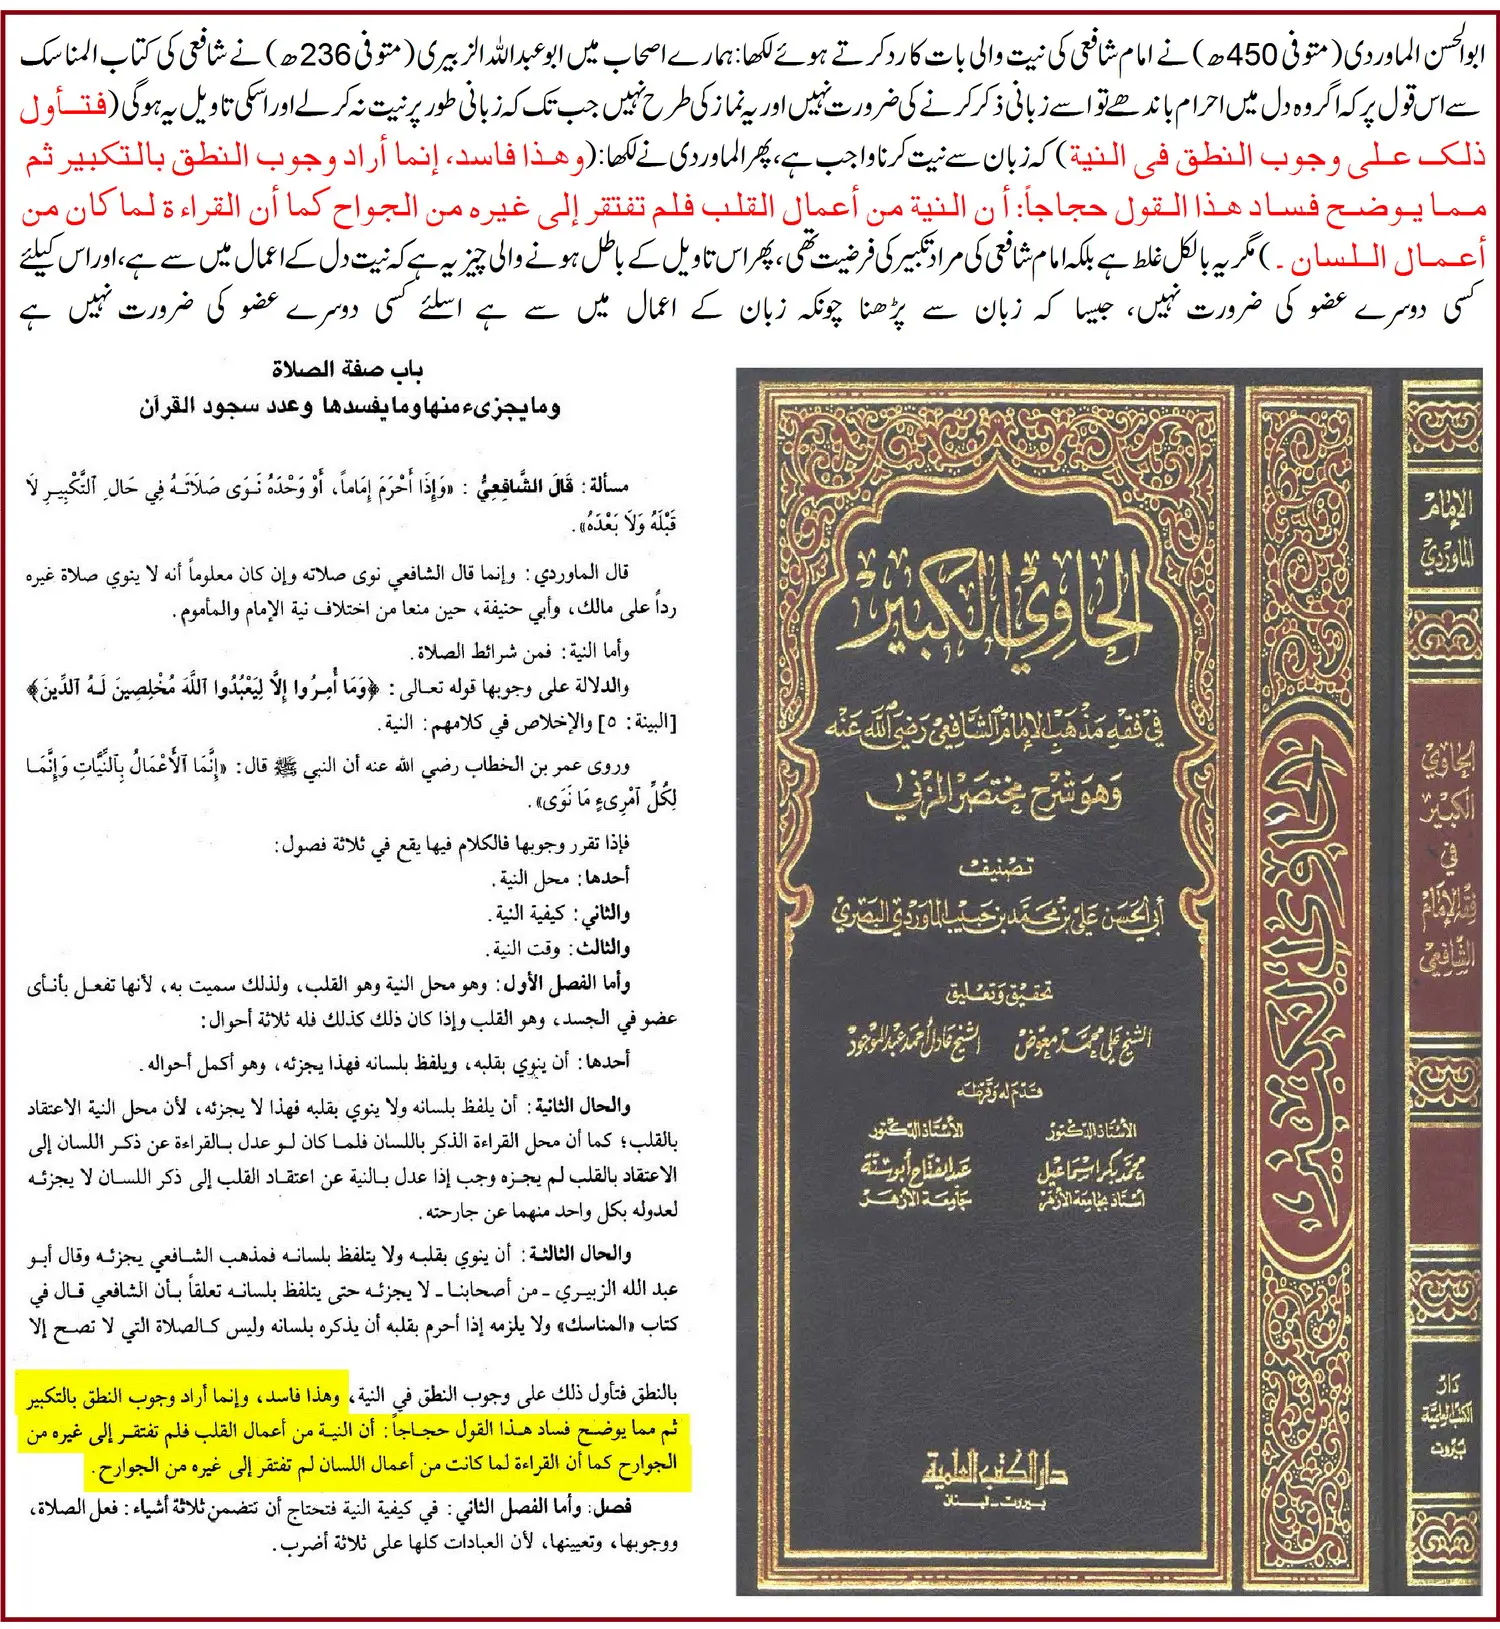 ابوالحسن الماوردی (متوفی 450ھ) نے امام شافعی کی نیت والی بات کا رد کرتے ہوئے لکھا: ہمارے اصحاب میں ابوعبداللہ الزبیری (متوفی 236ھ) نے شافعی کی کتاب المناسک
سے اس قول پر کہ اگر وہ دل میں احرام باندھے تو اسے زبانی ذکر کرنے کی ضرورت نہیں اور یہ نماز کی طرح نہیں جب تک کہ زبانی طور پر نیت نہ کرلے اور اسکی تاویل یہ ہوگی (فتأول
ذلک على وجوب النطق فى النية) کہ زبان سے نیت کرنا واجب ہے، پھر الماوردی نے لکھا: (وهذا فاسد، إنما أراد وجوب النطق بالتكبير ثم
مما يوضح فساد هذا القول حجاجاً: أن النية من أعمال القلب فلم تفتقر إلى غيره من الجواح كما أن القراءة لما كان من
أعمال اللسان۔) مگر یہ بالکل غلط ہے بلکہ امام شافعی کی مراد تکبیر کی فرضیت تھی، پھر اس تاویل کے باطل ہونے والی چیز یہ ہے کہ نیت دل کے اعمال میں سے ہے، اور اس کیلئے
کسی دوسرے عضو کی ضرورت نہیں، جیسا کہ زبان سے پڑھنا چونکہ زبان کے اعمال میں سے ہے اسلئے کسی دوسرے عضو کی ضرورت نہیں ہے
باب صفة الصلاة
وما يجزىء منها وما يفسدها وعدد سجود القرآن
مسألة: قَالَ الشَّافِعِيُّ: «وَإِذَا أَحْرَمَ إِمَاماً، أَوْ وَحْدَهُ نَوَى صَلَاتَهُ فِي حَالِ التَّكْبِيرِ لَا
قَبْلَهُ وَلَا بَعْدَهُ».
قال الماوردي: وإنما قال الشافعي نوى صلاته وإن كان معلوماً أنه لا ينوي صلاة غيره
رداً على مالك، وأبي حنيفة، حين منعا من اختلاف نية الإمام والمأموم.
وأما النية: فمن شرائط الصلاة.
والدلالة على وجوبها قوله تعالى: ﴿وَمَا أُمِرُوا إِلَّا لِيَعْبُدُوا اللَّهَ مُخْلِصِينَ لَهُ الدِّينَ﴾
[البينة: ٥] والإخلاص في كلامهم: النية.
وروى عمر بن الخطاب رضي الله عنه أن النبي ﷺ قال: «إِنَّمَا الْأَعْمَالُ بِالنِّيَّاتِ وَإِنَّمَا
لِكُلِّ امْرِىءٍ مَا نَوَى».
فإذا تقرر وجوبها فالكلام فيها يقع في ثلاثة فصول:
أحدها: محل النية.
والثاني: كيفية النية.
والثالث: وقت النية.
وأما الفصل الأول: وهو محل النية وهو القلب، ولذلك سميت به، لأنها تفعل بأنأى
عضو في الجسد، وهو القلب وإذا كان ذلك كذلك فله ثلاثة أحوال:
أحدها: أن ينوي بقلبه، ويلفظ بلسانه فهذا يجزئه، وهو أكمل أحواله.
والحال الثانية: أن يلفظ بلسانه ولا ينوي بقلبه فهذا لا يجزئه، لأن محل النية الاعتقاد
بالقلب؛ كما أن محل القراءة الذكر باللسان فلما كان لو عدل بالقراءة عن ذكر اللسان إلى
الاعتقاد بالقلب لم يجزه وجب إذا عدل بالنية عن اعتقاد القلب إلى ذكر اللسان لا يجزئه
لعدوله بكل واحد منهما عن جارحته.
والحال الثالثة: أن ينوي بقلبه ولا يتلفظ بلسانه فمذهب الشافعي يجزئه وقال أبو
عبد الله الزبيري ـ من أصحابنا ـ لا يجزئه حتى يتلفظ بلسانه تعلقاً بأن الشافعي قال في
كتاب «المناسك» ولا يلزمه إذا أحرم بقلبه أن يذكره بلسانه وليس كالصلاة التي لا تصح إلا
بالنطق فتأول ذلك على وجوب النطق في النية، وهذا فاسد، وإنما أراد وجوب النطق بالتكبير
ثم مما يوضح فساد هذا القول حجاجاً: أن النية من أعمال القلب فلم تفتقر إلى غيره من
الجوارح كما أن القراءة لما كانت من أعمال اللسان لم تفتقر إلى غيره من الجوارح.
فصل: وأما الفصل الثاني: في كيفية النية فتحتاج أن تتضمن ثلاثة أشياء: فعل الصلاة،
ووجوبها، وتعيينها، لأن العبادات كلها على ثلاثة أضرب.
الحاوي الكبير
في فقه مذهب الإمام الشافعي رضي الله عنه
وهو شرح مختصر المزني
تصنيف
أبي الحسن علي بن محمد بن حبيب الماوردي البصري
تحقيق وتعليق
الشيخ علي محمد معوض الشيخ عادل أحمد عبد الموجود
قدم له وقرظه
الأستاذ الدكتور الأستاذ الدكتور
محمد بكر إسماعيل عبد الفتاح أبو سنة
أستاذ بجامعة الأزهر جامعة الأزهر
دار الكتب العلمية
بيروت - لبنان
الحاوي الكبير
الإمام
الماوردي
الحاوي
الكبير
في
فقه الإمام
الشافعي
دار
الكتب العلمية
بيروت